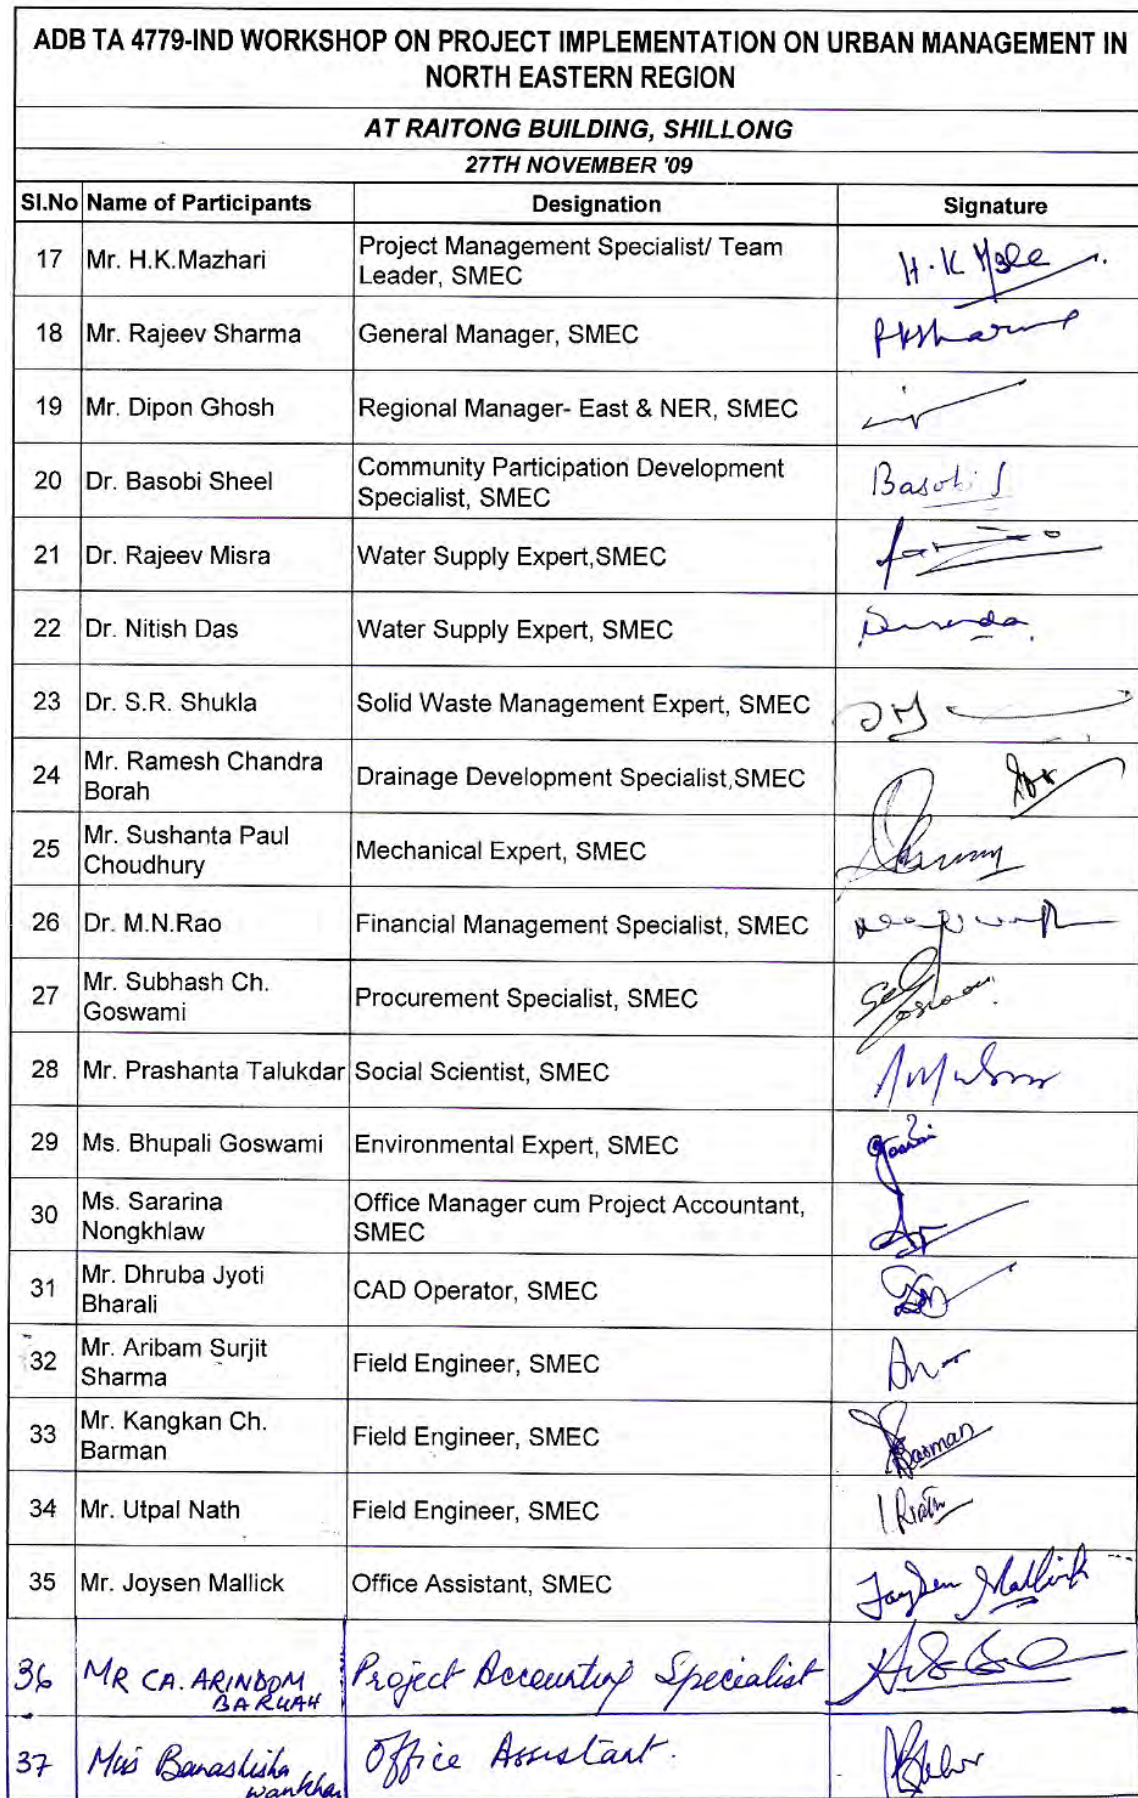 ADB TA 4779-IND WORKSHOP ON PROJECT IMPLEMENTATION ON URBAN MANAGEMENT IN
NORTH EASTERN REGION
AT RAITONG BUILDING, SHILLONG
27TH NOVEMBER '09
Sl.No Name of Participants Designation Signature
17 Mr. H.K.Mazhari Project Management Specialist/ Team
Leader, SMEC H.K
18 Mr. Rajeev Sharma General Manager, SMEC
19 Mr. Dipon Ghosh Regional Manager- East & NER, SMEC
20 Dr. Basobi Sheel Community Participation Development
Specialist, SMEC Basobi S
21 Dr. Rajeev Misra Water Supply Expert,SMEC
22 Dr. Nitish Das Water Supply Expert, SMEC
23 Dr. S.R. Shukla Solid Waste Management Expert, SMEC
24 Mr. Ramesh Chandra
Borah Drainage Development Specialist,SMEC
25 Mr. Sushanta Paul
Choudhury Mechanical Expert, SMEC
26 Dr. M.N.Rao Financial Management Specialist, SMEC
27 Mr. Subhash Ch.
Goswami Procurement Specialist, SMEC
28 Mr. Prashanta Talukdar Social Scientist, SMEC
29 Ms. Bhupali Goswami Environmental Expert, SMEC
30 Ms. Sararina
Nongkhlaw Office Manager cum Project Accountant,
SMEC
31 Mr. Dhruba Jyoti
Bharali CAD Operator, SMEC
32 Mr. Aribam Surjit
Sharma Field Engineer, SMEC
33 Mr. Kangkan Ch.
Barman Field Engineer, SMEC Barman
34 Mr. Utpal Nath Field Engineer, SMEC
35 Mr. Joysen Mallick Office Assistant, SMEC Joysen Mallick
36 MR CA. ARINDOM
BARUAH Project Accounting Specialist
37 Office Assistant.